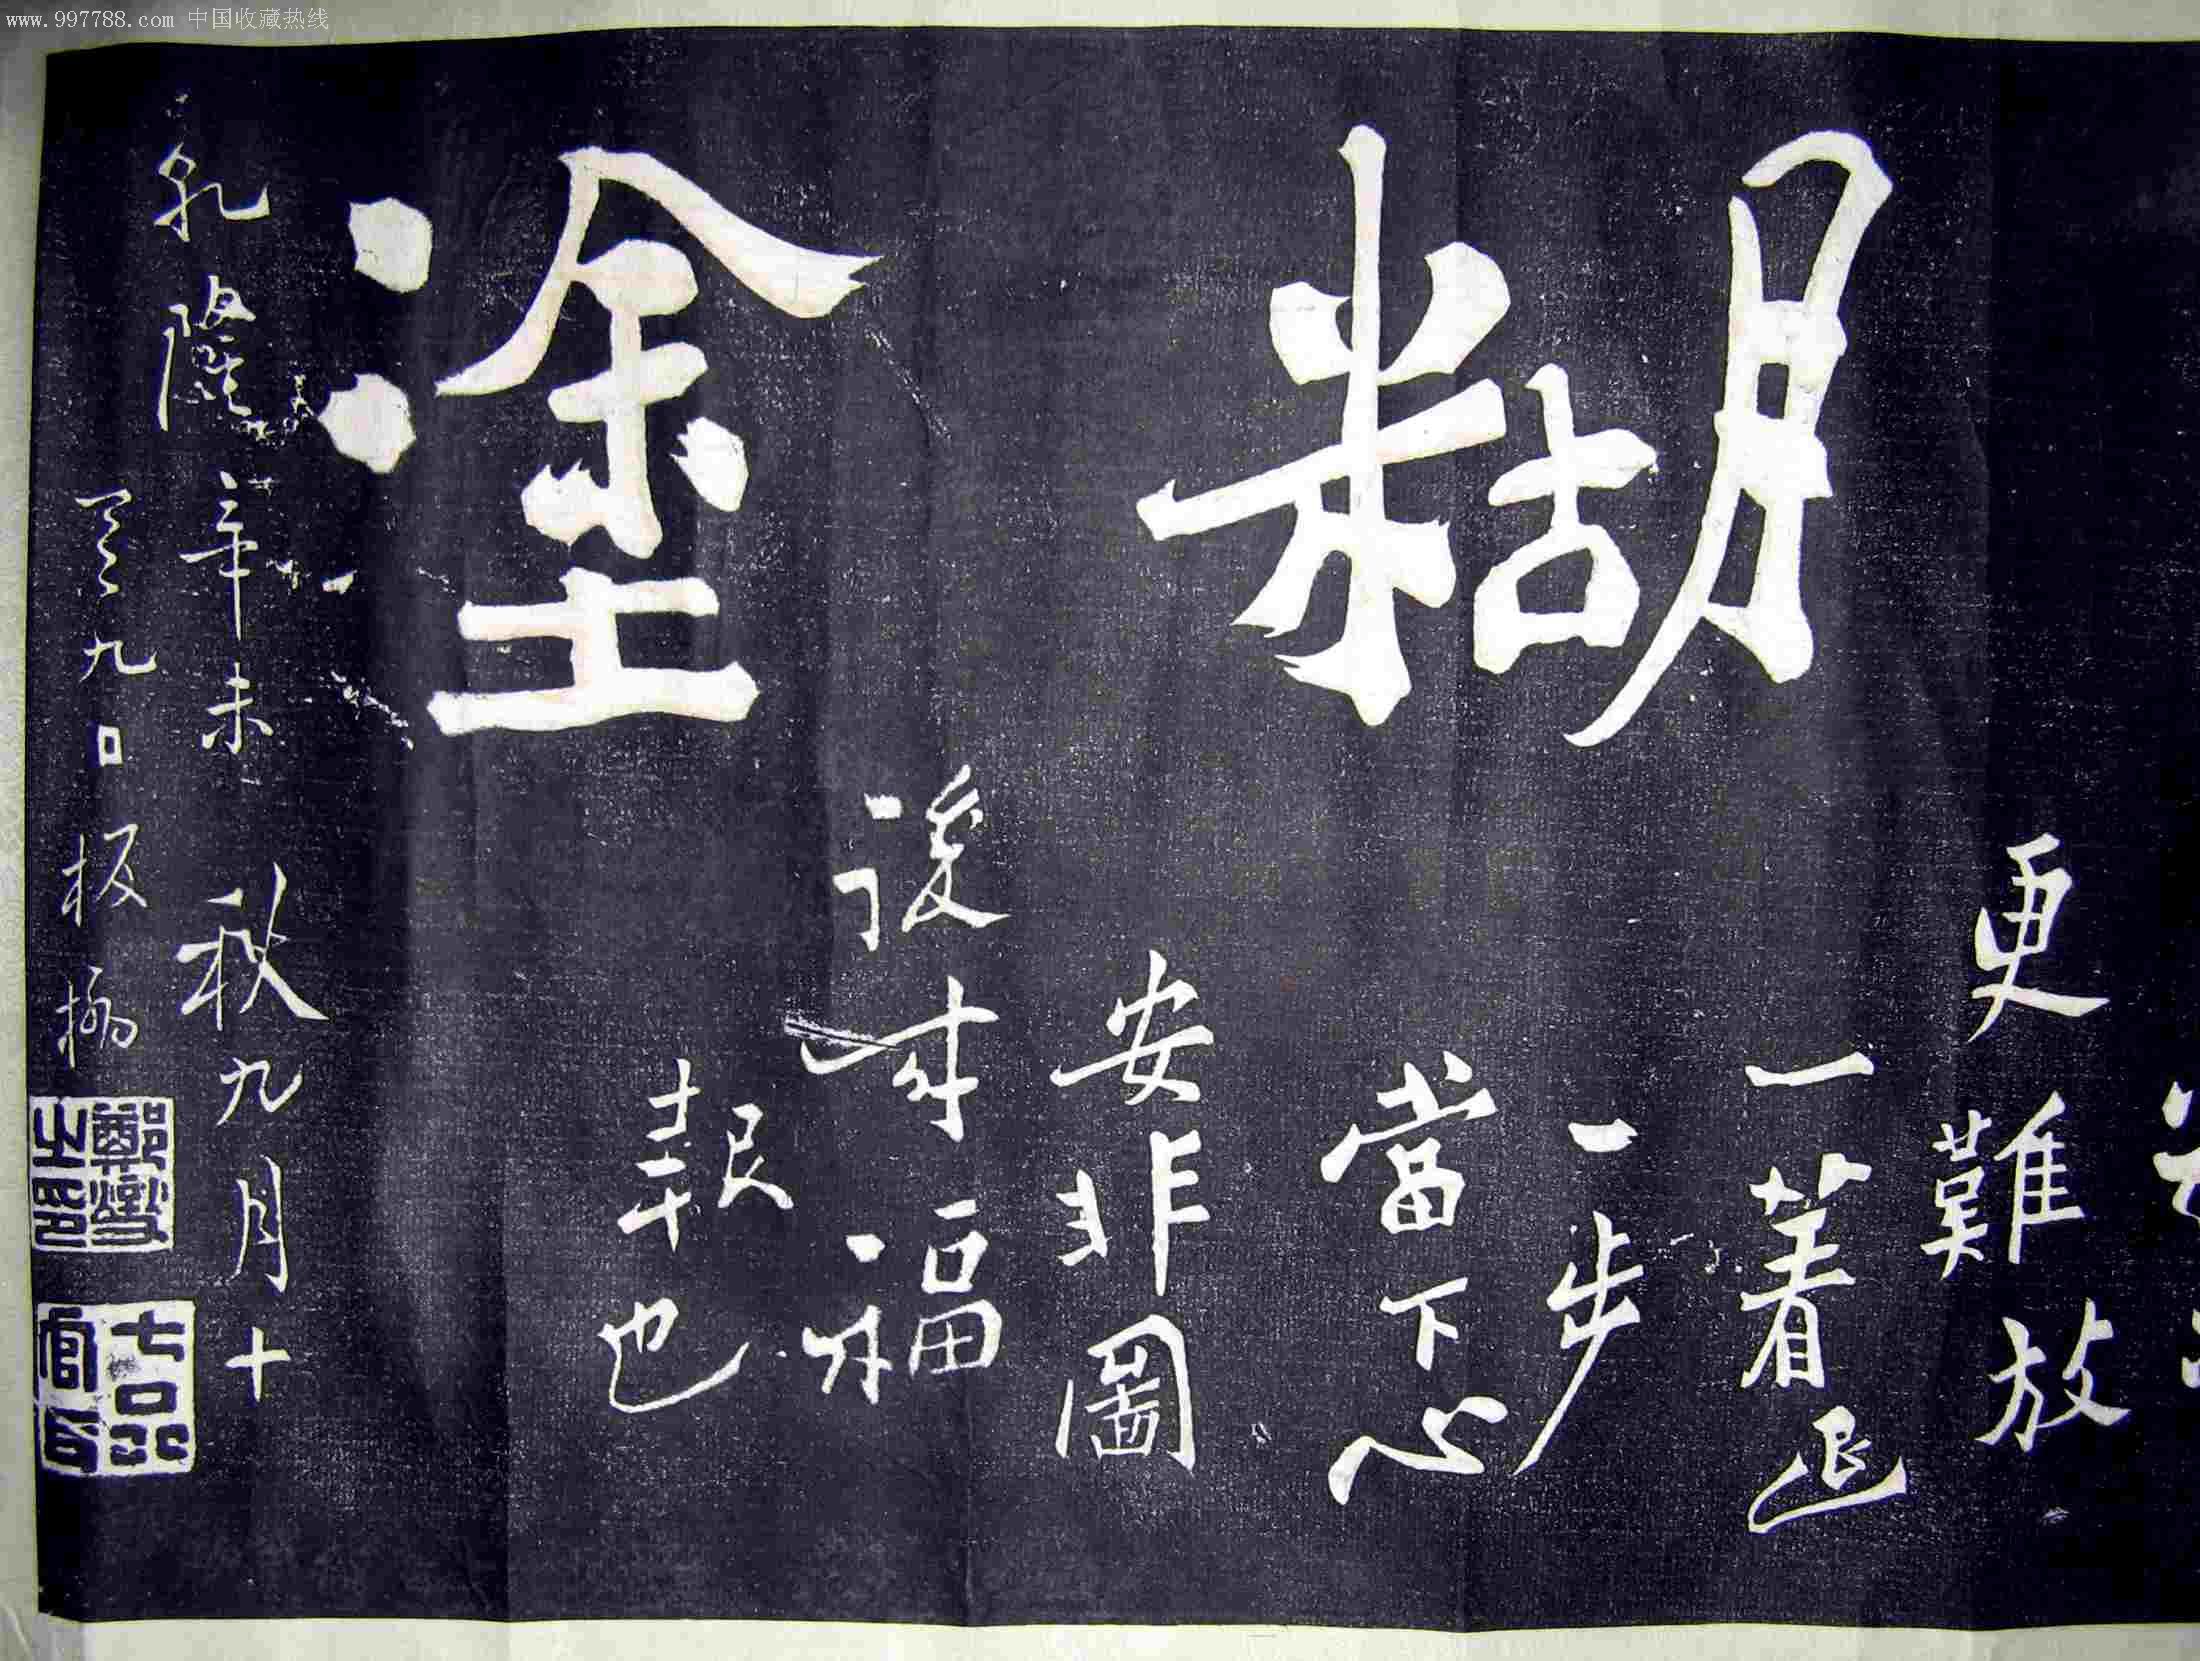 www.997788.com 中国收藏热线
糊塗
更難放
一著退
一步
當下心
安非圖
後來福
報也
乾隆辛未秋九月十
有九日板橋
鄭燮之印
七品官耳